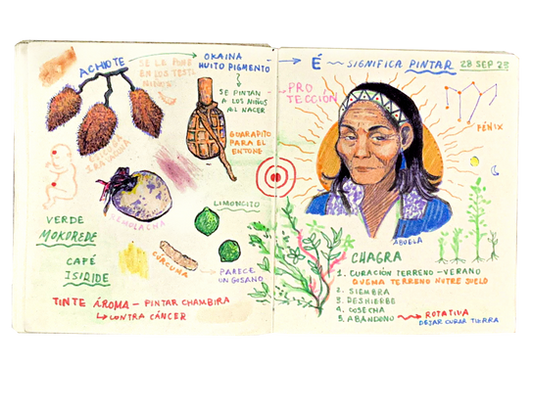 ACHIOTE
SE LA PONE
EN LOS TEST
NIÑOS
OKAINA
HUITO PIGMENTO
SE PINTAN
A LOS NIÑOS
AL NACER
GUARAPITO
PARA EL
ENTONE
REMOLACHA
LIMONCITO
VERDE
MOKOREDE
CAFÉ
ISIRIDE
CÚRCUMA
PARECE
UN GISANO
TINTE ÁROMA – PINTAR CHAMBIRA
CONTRA CÁNCER
É SIGNIFICA PINTAR
28 SEP 23
PRO
TECCIÓN
FÉNIX
ABUELA
CHAGRA
1. CURACIÓN TERRENO – VERANO
QUEMA TERRENO NUTRE SUELO
2. SIEMBRA
3. DESHIERBE
4. COSECHA
5. ABANDONO ROTATIVA
DEJAR CURAR TIERRA